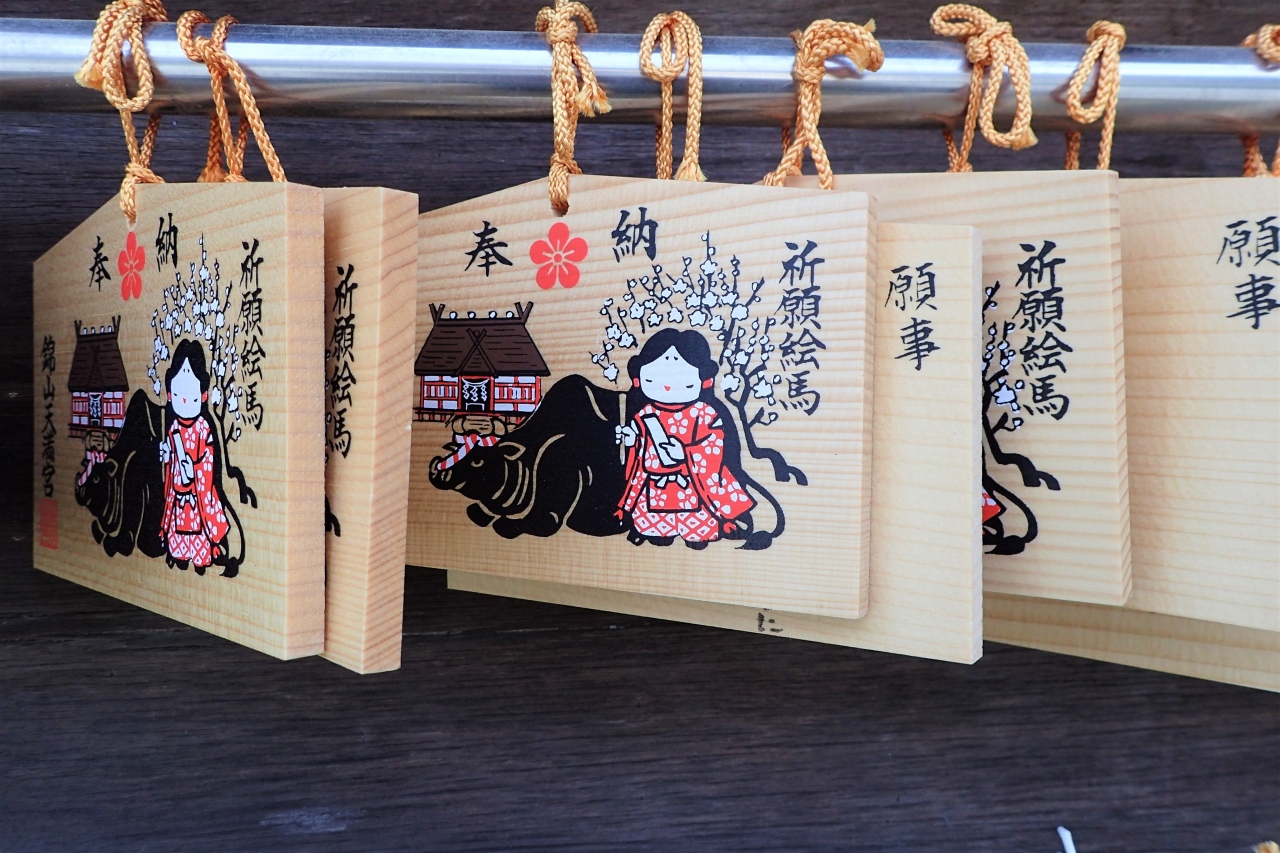 奉 納
祈願絵馬
錦山天満宮
祈願絵馬
奉 納
祈願絵馬
願事
祈願絵馬
願事
に